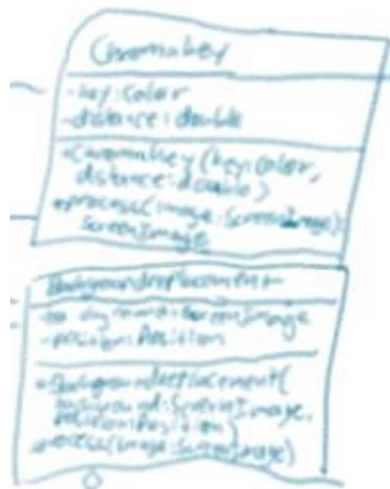 Chromakey
-key:Color
-distance:double
+Chromakey(key:Color,
distance:double)
+process(image:ScreenImage):
ScreenImage
Backgroundreplacement
-background:ScreenImage
-position:Position
+Backgroundreplacement(
background:ScreenImage,
position:Position)
+process(image:ScreenImage)